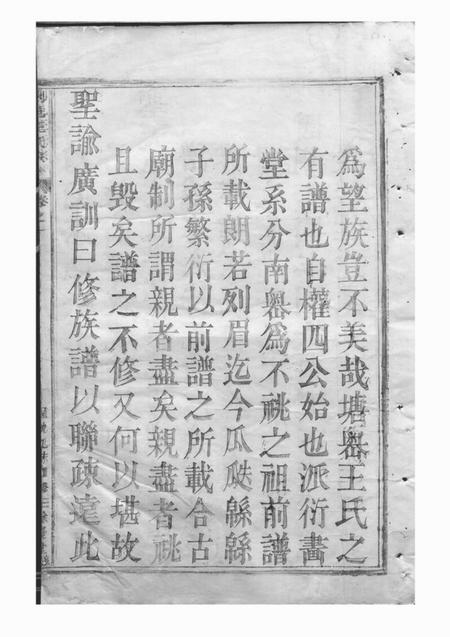 為望族豈不美哉塘嶴王氏之
有譜也自權四公始也派衍畵
堂系分南嶴為不祧之祖前譜
所載朗若列眉迄今瓜瓞緜緜
子孫繁衍以前譜之所載合古
廟制所謂親者盡矣親盡者祧
且毀矣譜之不修又何以堪故
聖諭廣訓曰修族譜以聯疎遠此